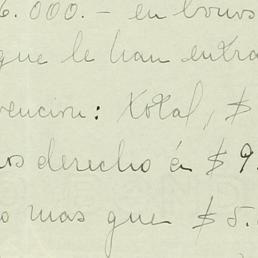 6.000.- en bonos
que le han entra
vencion: Total, $
os derecho á $ 9.
o mas que $ 5.